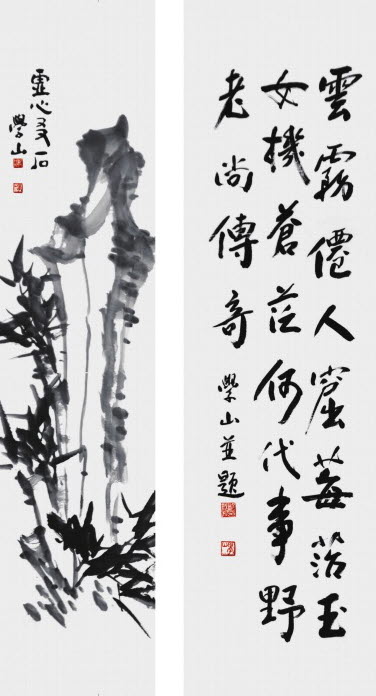 雲霧僊人窟莓苔玉
女機蒼茫何代事野
老尚傳奇
學山並題
虛心友石
學山